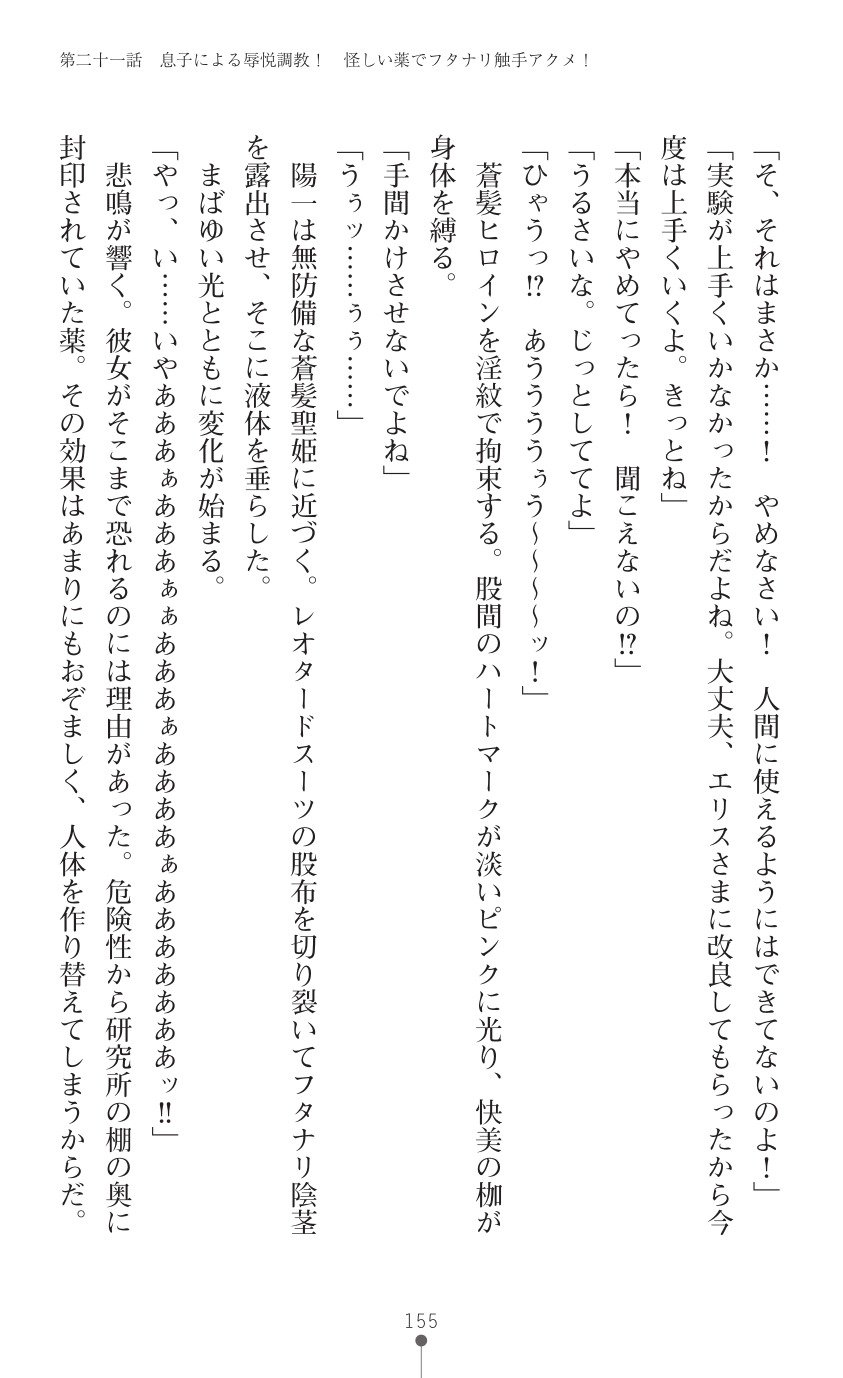 第二十一話　息子による辱悦調教！　怪しい薬でフタナリ触手アクメ！
「そ、それはまさか……！　やめなさい！　人間に使えるようにはできてないのよ！」
「実験が上手くいかなかったからだよね。大丈夫、エリスさまに改良してもらったから今
度は上手くいくよ。きっとね」
「本当にやめてったら！　聞こえないの!?」
「うるさいな。じっとしててよ」
「ひゃうっ!?　あうううぅう～～～～ッ！」
　蒼髪ヒロインを淫紋で拘束する。股間のハートマークが淡いピンクに光り、快美の枷が
身体を縛る。
「手間かけさせないでよね」
「うぅッ……ぅぅ……」
　陽一は無防備な蒼髪聖姫に近づく。レオタードスーツの股布を切り裂いてフタナリ陰茎
を露出させ、そこに液体を垂らした。
　まばゆい光とともに変化が始まる。
「やっ、い……いやあああぁあああぁぁあああぁああああぁあああああああッ!!」
　悲鳴が響く。彼女がそこまで恐れるのには理由があった。危険性から研究所の棚の奥に
封印されていた薬。その効果はあまりにもおぞましく、人体を作り替えてしまうからだ。
155